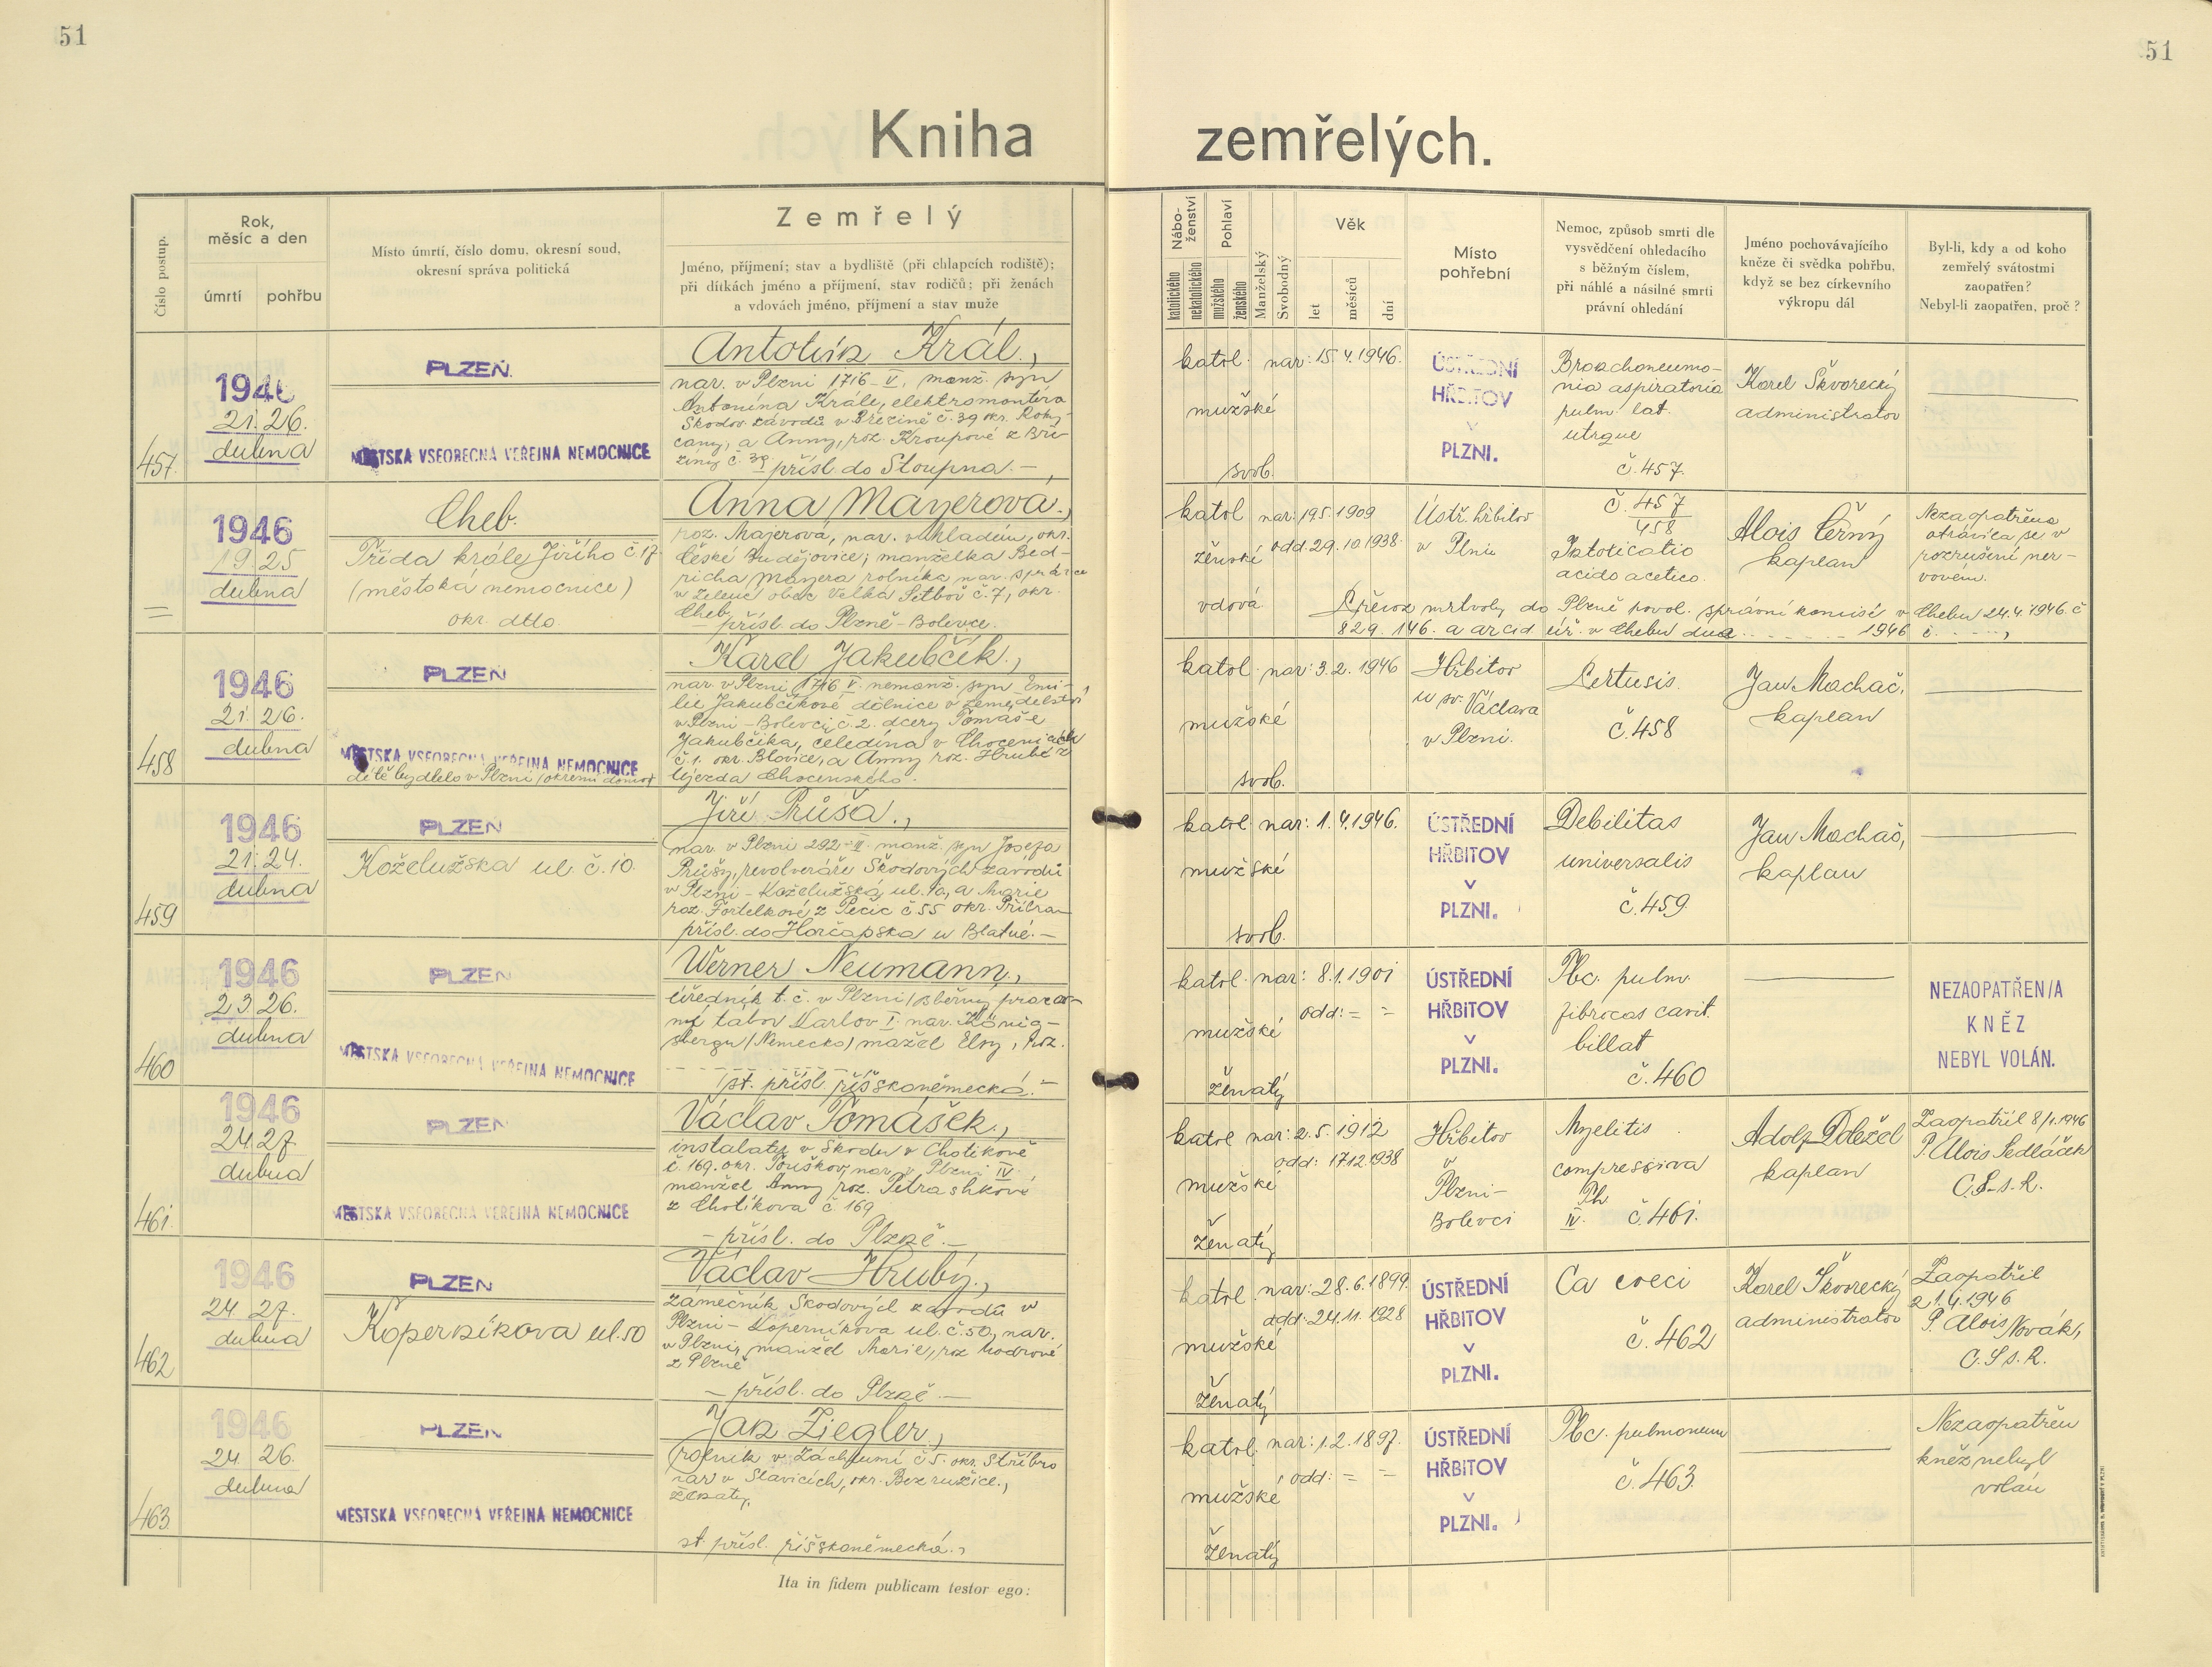 51
51
Kniha zemřelých.
Číslo postup.
Rok,
měsíc a den
úmrtí
pohřbu
Místo úmrtí, číslo domu, okresní soud,
okresní správa politická
Zemřelý
Jméno, příjmení; stav a bydliště (při chlapcích rodiště);
při dítkách jméno a příjmení, stav rodičů; při ženách
a vdovách jméno, příjmení a stav muže
Nábo-
ženství
katolického
nekatolického
Pohlaví
mužského
ženského
Manželský
Svobodný
Věk
let
měsíců
dní
Místo
pohřební
Nemoc, způsob smrti dle
vysvědčení ohledacího
s běžným číslem,
při náhlé a násilné smrti
právní ohledání
Jméno pochovávajícího
kněze či svědka pohřbu,
když se bez církevního
výkropu dál
Byl-li, kdy a od koho
zemřelý svátostmi
zaopatřen?
Nebyl-li zaopatřen, proč?
457.
1946
21. 26.
dubna
PLZEŇ
MĚSTSKÁ VŠEOBECNÁ VEŘEJNÁ NEMOCNICE
Antonín Král.,
nar. v Plzni 1716-V., manž. syn
Antonína Krále, elektromontéra
Škodov. závodů v Březině č. 39 okr. Roky-
cany, a Anny, roz. Kroupové z Bře-
ziny č. 39
přísl. do Stoupna. —
katol.
mužské
svob.
nar: 15.4.1946.
ÚSTŘEDNÍ
HŘBITOV
v
PLZNI.
Bronchoneumo-
nia aspiratoria
pulm. lat.
utrque
č. 457.
Karel Škvorecký
administrátor
1946
19. 25
dubna
Cheb.
Třída krále Jiřího č. 17.
(městská nemocnice)
okr. dtto.
Anna Mayerová.,
roz. Majerová, nar. v Mladém, okr.
České Budějovice; manželka Bed-
řicha Mayera rolníka nar.
obec Velká č. 7, okr.
Cheb.
— přísl. do Plzně - Bolevce.
katol
ženské
vdová
nar: 19.5.1909
odd. 29.10.1938.
Ústř. hřbitov
v Plzni
č. 457
458
Intoticatio
acido acetico.
Alois Černý
kaplan
Nezaopatřena
otrávila se v
rozrušení ner-
vovém.
Převoz mrtvoly do Plzně povol. správní komisí v Chebu 24.4.1946. č
829. 146. a arcid. úř. v Chebu dne 1946 č.
458
1946
21. 26.
dubna
PLZEŇ
MĚSTSKÁ VŠEOBECNÁ VEŘEJNÁ NEMOCNICE
dítě bydlelo v Plzni
Karel Jakubčík.,
nar. v Plzni 1716 V. nemanž. syn Emi-
lie Jakubčíkové dělnice v zemědělství
v Plzni - Bolevci, č. 2. dcery Tomáše
Jakubčíka, čeledína v Chocenicích
č. 1. okr. Blovice, a Anny roz. Hrubé z
Újezda Chocenského.
katol.
mužské
svob.
nar: 3.2.1946
Hřbitov
u sv. Václava
v Plzni.
Pertusis.
č. 458
Jan Machač,
kaplan
459
1946
21. 24.
dubna
PLZEŇ
Koželužská ul. č. 10.
Jiří Průša.,
nar. v Plzni 292-II. manž. syn Josefa
Průšy, revolveráře Škodových závodů
v Plzni - Koželužská ul. 10, a Marie
roz. Fořtelkové z Pečic č 55 okr. Příbram
přísl. do Horčápska u Blatné. —
katol.
mužské
svob.
nar: 1.4.1946.
ÚSTŘEDNÍ
HŘBITOV
v
PLZNI.
Debilitas
universalis
č. 459.
Jan Machač,
kaplan
460
1946
23. 26.
dubna
PLZEŇ
MĚSTSKÁ VŠEOBECNÁ VEŘEJNÁ NEMOCNICE
Werner Neumann.,
úředník t. č. v Plzni / sběrný pracov-
ní tábor Karlov I. nar. König-
sbergu / Německo / manžel Elsy, roz.
st. přísl. říšskoněmecká. —
katol.
mužské
ženatý
nar: 8.1.1901
odd: = =
ÚSTŘEDNÍ
HŘBITOV
v
PLZNI.
Tbc. pulm.
fibrocas cavit.
billat
č. 460
NEZAOPATŘEN/A
KNĚZ
NEBYL VOLÁN.
461.
1946
24. 27.
dubna
PLZEŇ
MĚSTSKÁ VŠEOBECNÁ VEŘEJNÁ NEMOCNICE
Václav Tomášek.,
instalatér v Škodov. v Chotíkově
č. 169. okr. Touškov, nar. v Plzni IV.
manžel Anny, roz. Petrashkové
z Chotíkova č. 169
— přísl. do Plzně. —
katol
mužské
ženatý
nar: 2.5.1912
odd: 17.12.1938
Hřbitov
v
Plzni-
Bolevci
Myelitis
compressiva
Th
IV. č. 461.
Adolf Doležel
kaplan
Zaopatřil 8/4.1946
P. Alois Sedláček
C.S.s.R.
462
1946
24. 27.
dubna
PLZEŇ
Koperníkova ul. 50
Václav Hrubý.,
zámečník Škodových závodů v
Plzni - Koperníkova ul. č. 50, nar.
v Plzni, manžel Marie, roz.
z Plzně
— přísl. do Plzně. —
katol.
mužské
ženatý
nar: 28.6.1899.
odd: 24.11.1928
ÚSTŘEDNÍ
HŘBITOV
v
PLZNI.
Ca coeci
č. 462
Karel Škvorecký
administrátor
Zaopatřil
21.4.1946
P. Alois Novák,
C.S.s.R.
463.
1946
24. 26.
dubna
PLZEŇ
MĚSTSKÁ VŠEOBECNÁ VEŘEJNÁ NEMOCNICE
Jan Ziegler.,
rolník v Záchlumí č 5. okr. Stříbro
nar. v Slavicích, okr. Bezdružice.,
ženatý,
st. přísl. říšskoněmecká.,
katol.
mužské
ženatý
nar: 1.2.1897.
odd: = =
ÚSTŘEDNÍ
HŘBITOV
v
PLZNI.
Tbc. pulmonum
č. 463.
Nezaopatřen
kněz nebyl
volán
Ita in fidem publicam testor ego: